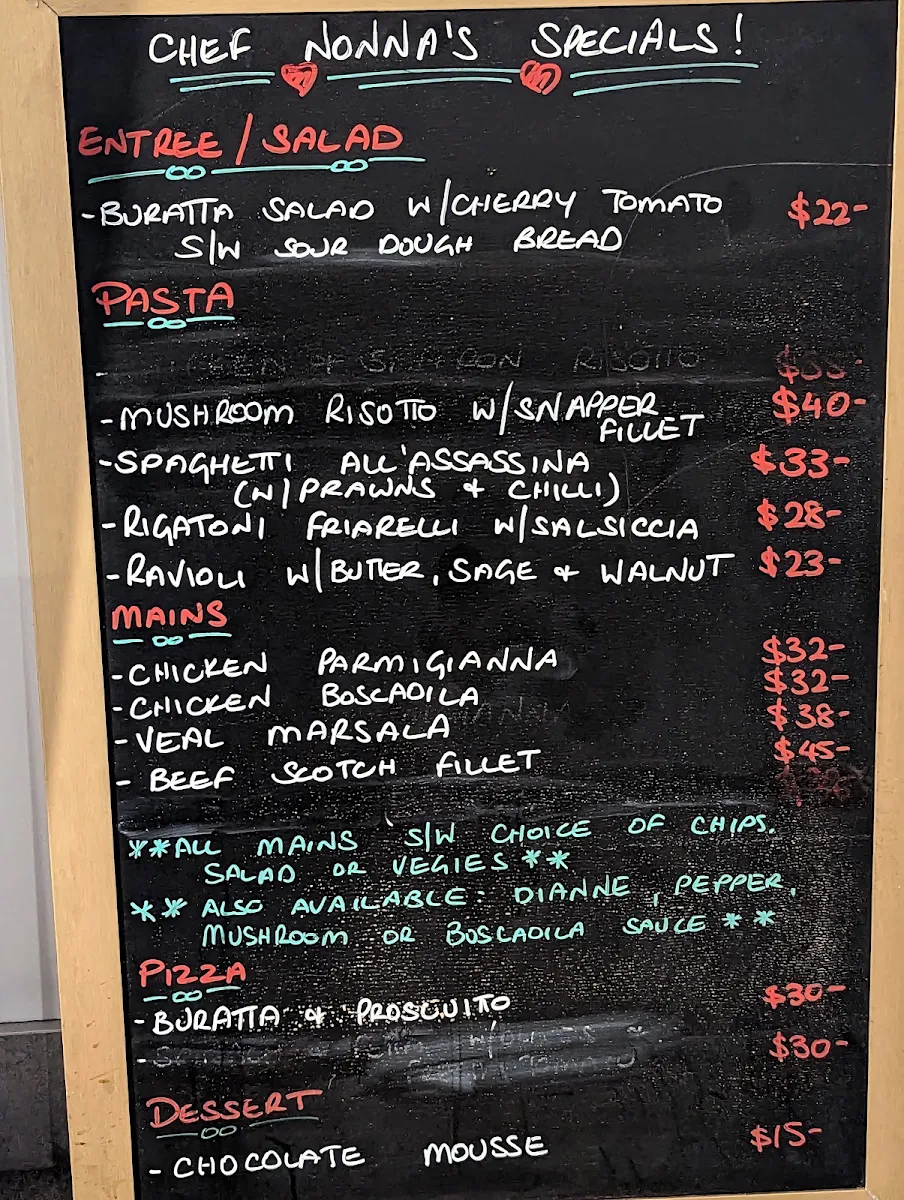 CHEF NONNA'S SPECIALS!
ENTREE/SALAD
-BURATTA SALAD W/CHERRY TOMATO $22-
S/W SOUR DOUGH BREAD
PASTA
RISOTTO
-MUSHROOM RISOTTO W/SNAPPER $40-
FILLET
-SPAGHETTI ALL'ASSASSINA $33-
(W/PRAWNS & CHILLI)
-RIGATONI FRIARELLI W/SALSICCIA $28-
-RAVIOLI W/BUTTER, SAGE & WALNUT $23-
MAINS
-CHICKEN PARMIGIANNA $32-
-CHICKEN BOSCAOILA $32-
-VEAL MARSALA $38-
- BEEF SCOTCH FILLET $45-
**ALL MAINS S/W CHOICE OF CHIPS.
SALAD OR VEGIES **
** ALSO AVAILABLE: DIANNE, PEPPER,
MUSHROOM OR BOSCAOILA SAUCE **
PIZZA
-BURATTA & PROSCUITO $30-
- $30-
DESSERT
-CHOCOLATE MOUSSE $15-